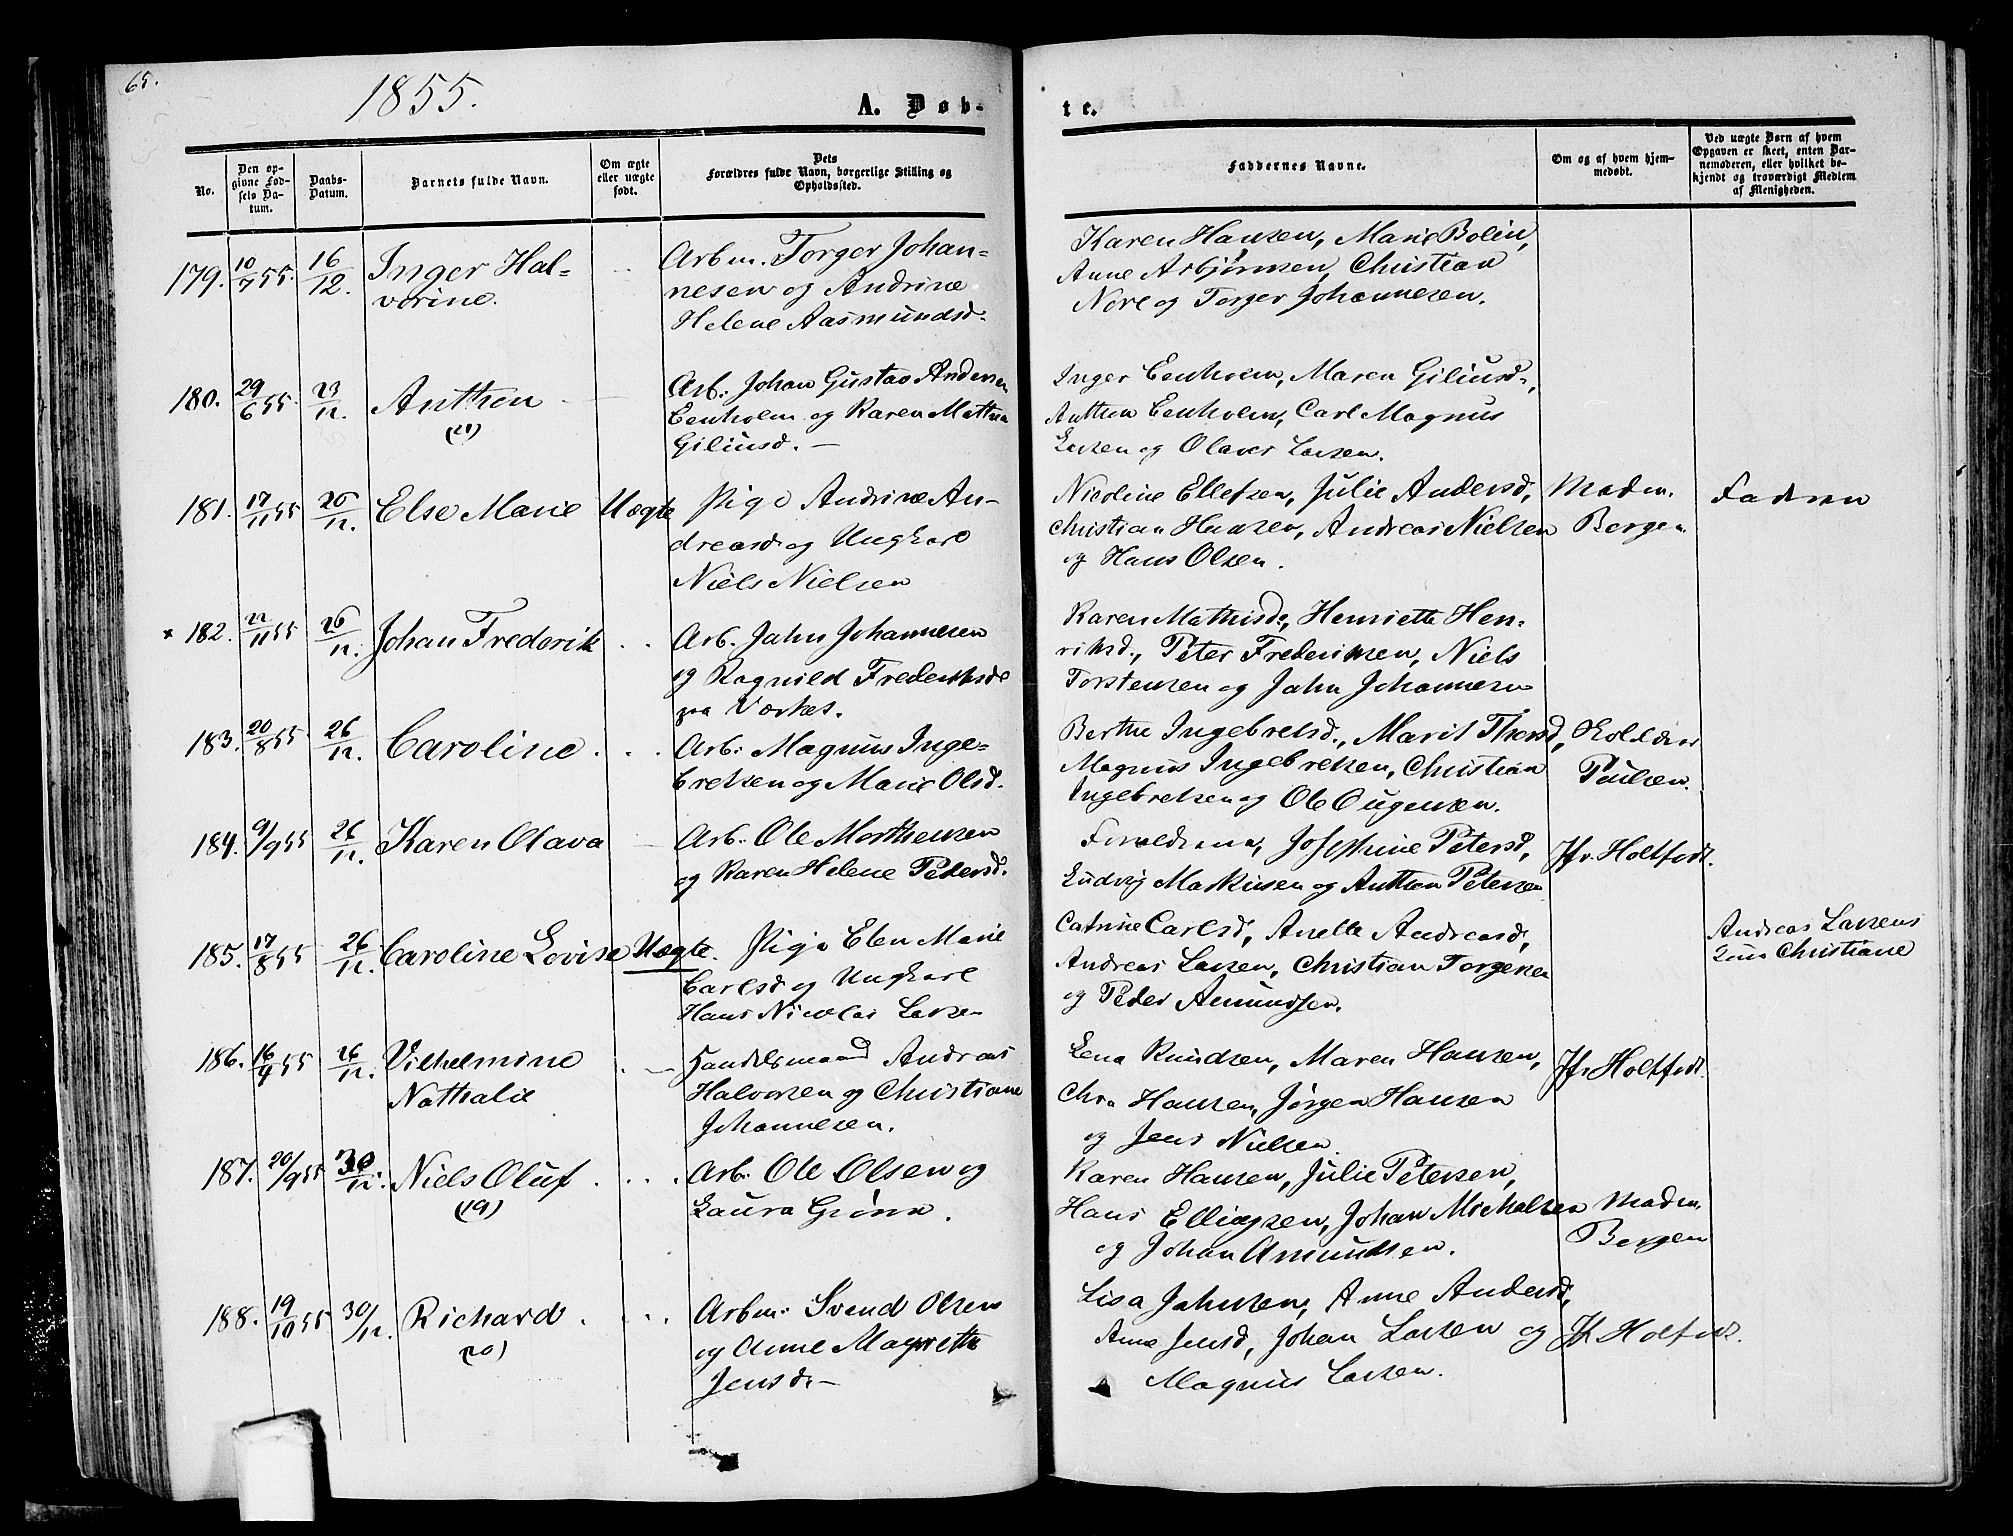 65.
1855.
A. Døb-
te.
No.
Den op-
givne Fød-
sels Da-
tum.
Daabs-
Datum.
Barnets fulde Navn.
Om ægte
eller uægte
født.
Dets
Forældres fulde Navn, borgerlige Stilling og
Opholdssted.
Faddernes Navne.
Om og af hvem hjem-
medøbt.
Ved uægte Børn af hvem
Opgaven er skeet, enten Bar-
nemoderen, eller hvilket be-
kjendt og troværdigt Medlem
af Menigheden.
179. 10/7 55. 16/12. Inger Hal-
vorine.
Arbm. Torger Johan-
nesen og Andrine
Helene Aasmundsd.
Karen Hansen, Marie Bolin,
Anne Asbjørnsen, Christian
Nore og Torger Johannesen.
180. 29/6 55. 23/12. Anthon
(21)
Arb: Johan Gustav Andersen
Eenholm og Karen Mathea
Giliusd. —
Inger Eenholm, Maren Giliusd.,
Anthon Eenholm, Carl Magnus
Larsen og Olaves Larsen.
181. 17/11 55 26/12. Else Marie Uægte
Pige Andrine An-
dreasd og Ungkarl
Niels Nielsen
Nicoline Ellefsen, Julie Andersd,
Christian Hansen, Andreas Nielsen
og Hans Olsen.
Madm.
Bergen
Fadren
x 182. 22/11 55 26/12. Johan Frederik
Arb. Jahn Johannesen
og Ragnild Frederiksd
paa Værket.
Karen Mathisd, Henriette Hen-
riksd., Peter Frederiksen, Niels
Torstensen og Jahn Johannesen
183. 20/8 55 26/12. Caroline
Arb: Magnus Inge-
bretsen og Marie Olsd.
Berthe Ingebretsd., Marit Thorsd,
Magnus Ingebretsen, Christian
Ingebretsen og Ole Ougensen.
Poulsen.
184. 9/9 55 26/12. Karen Olava
Arb: Ole Morthensen
og Karen Helene Petersd.
Forældrene, Josephine Petersd,
Ludvig Markusen og Anthon Petersen
Jfr. Holtfodt.
185. 17/8 55 26/12. Caroline Lovise Uægte.
Pige Elen Marie
Carlsd og Ungkarl
Hans Nicolai Larsen
Catrine Carlsd, Anette Andreasd,
Andreas Larsen, Christian Torgersen
og Peder Amundsen.
Andreas Larsens
Christiane
186. 16/9 55 26/12. Vilhelmine
Nathalie
Handelsmand Andreas
Halvorsen og Christiane
Johannesen.
Lena Knudsen, Maren Hansen,
Chr. Hansen, Jørgen Hansen
og Jens Nielsen
Jfr Holtfodt.
187. 20/9 55 30/12. Niels Oluf
(19)
Arb: Ole Olsen og
Laura Grønn.
Karen Hansen, Julie Petersen,
Hans Ellingsen, Johan Michalsen
og Johan Amundsen.
Madm.
Bergen
188. 19/10 55 30/12. Richard
(20)
Arbm: Svend Olsen
og Anne Magrethe
Jensd. —
Lisa Jahnsen, Anne Andersd,
Anne Jensd, Johan Larsen og
Magnus Larsen.
Jf. Holtfodt.